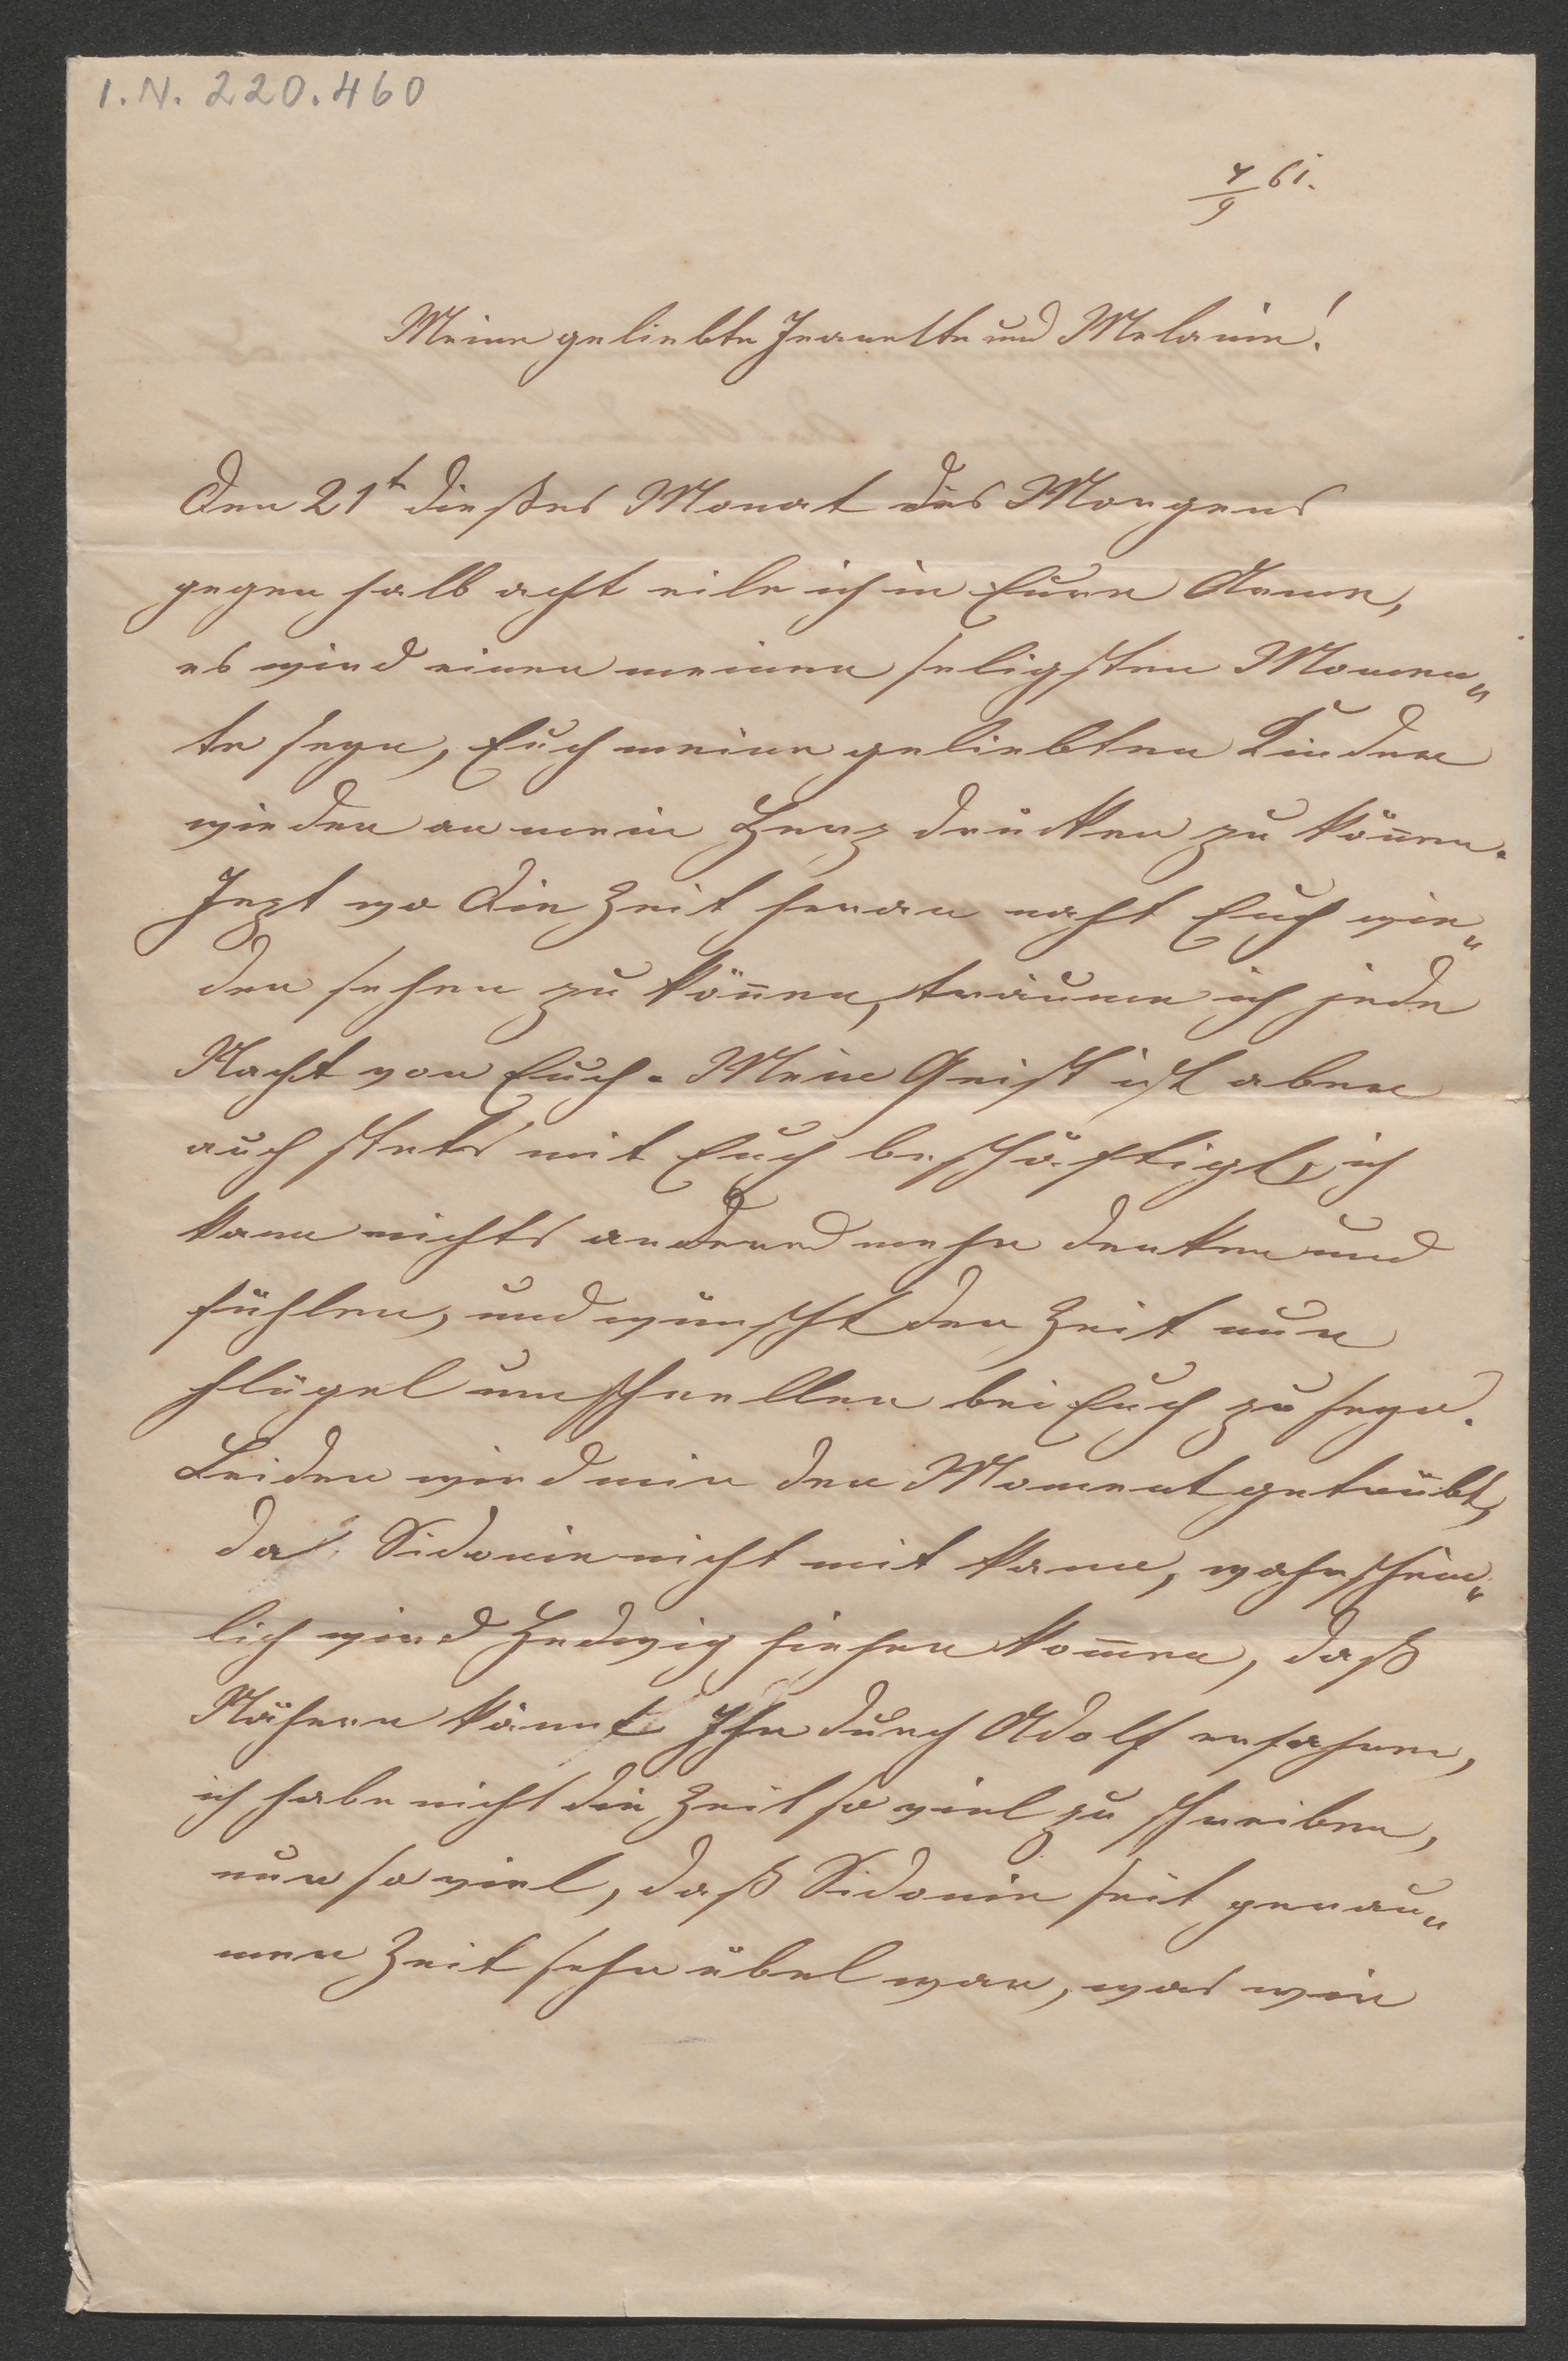 I.N. 220.460
4/9 61.
Meine geliebte Jeanette und Melanie!
Den 21t dießes Monat des Morgens
gegen halb acht eile ich in Eure Arme,
es wird einer meiner seligsten Momen„
te seyn, Euch meine geliebten Kinder
wieder an mein Herz drücken zu könen.
Jezt wo die Zeit heran naht Euch wie„
der sehen zu könen, träume ich jede
Nacht von Euch. Mein Geist ist aber
auch stets mit Euch beschäftigt, ich
kann nichts anderes mehr denken und
fühlen, und wünscht der Zeit nur
Flügel um schneller bei Euch zu seyn.
Leider wird mir der Moment getrübt,
da Sidonie nicht mit kann, wahrschein„
lich wird Hedwig hieher komen, daß
Nähere könnt Ihr durch Adolf erfahren,
ich habe nicht die Zeit so viel zu schreiben,
nur so viel, daß Sidonie seit gerau„
mer Zeit sehr übel war, was wir